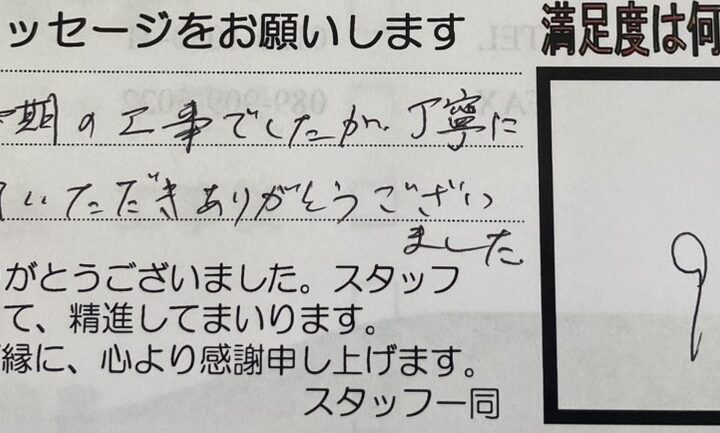 ッセージをお願いします
満足度は何
期の工事でしたが、丁寧に
いただきありがとうござい
ました
9
がとうございました。スタッフ
て、精進してまいります。
縁に、心より感謝申し上げます。
スタッフ一同